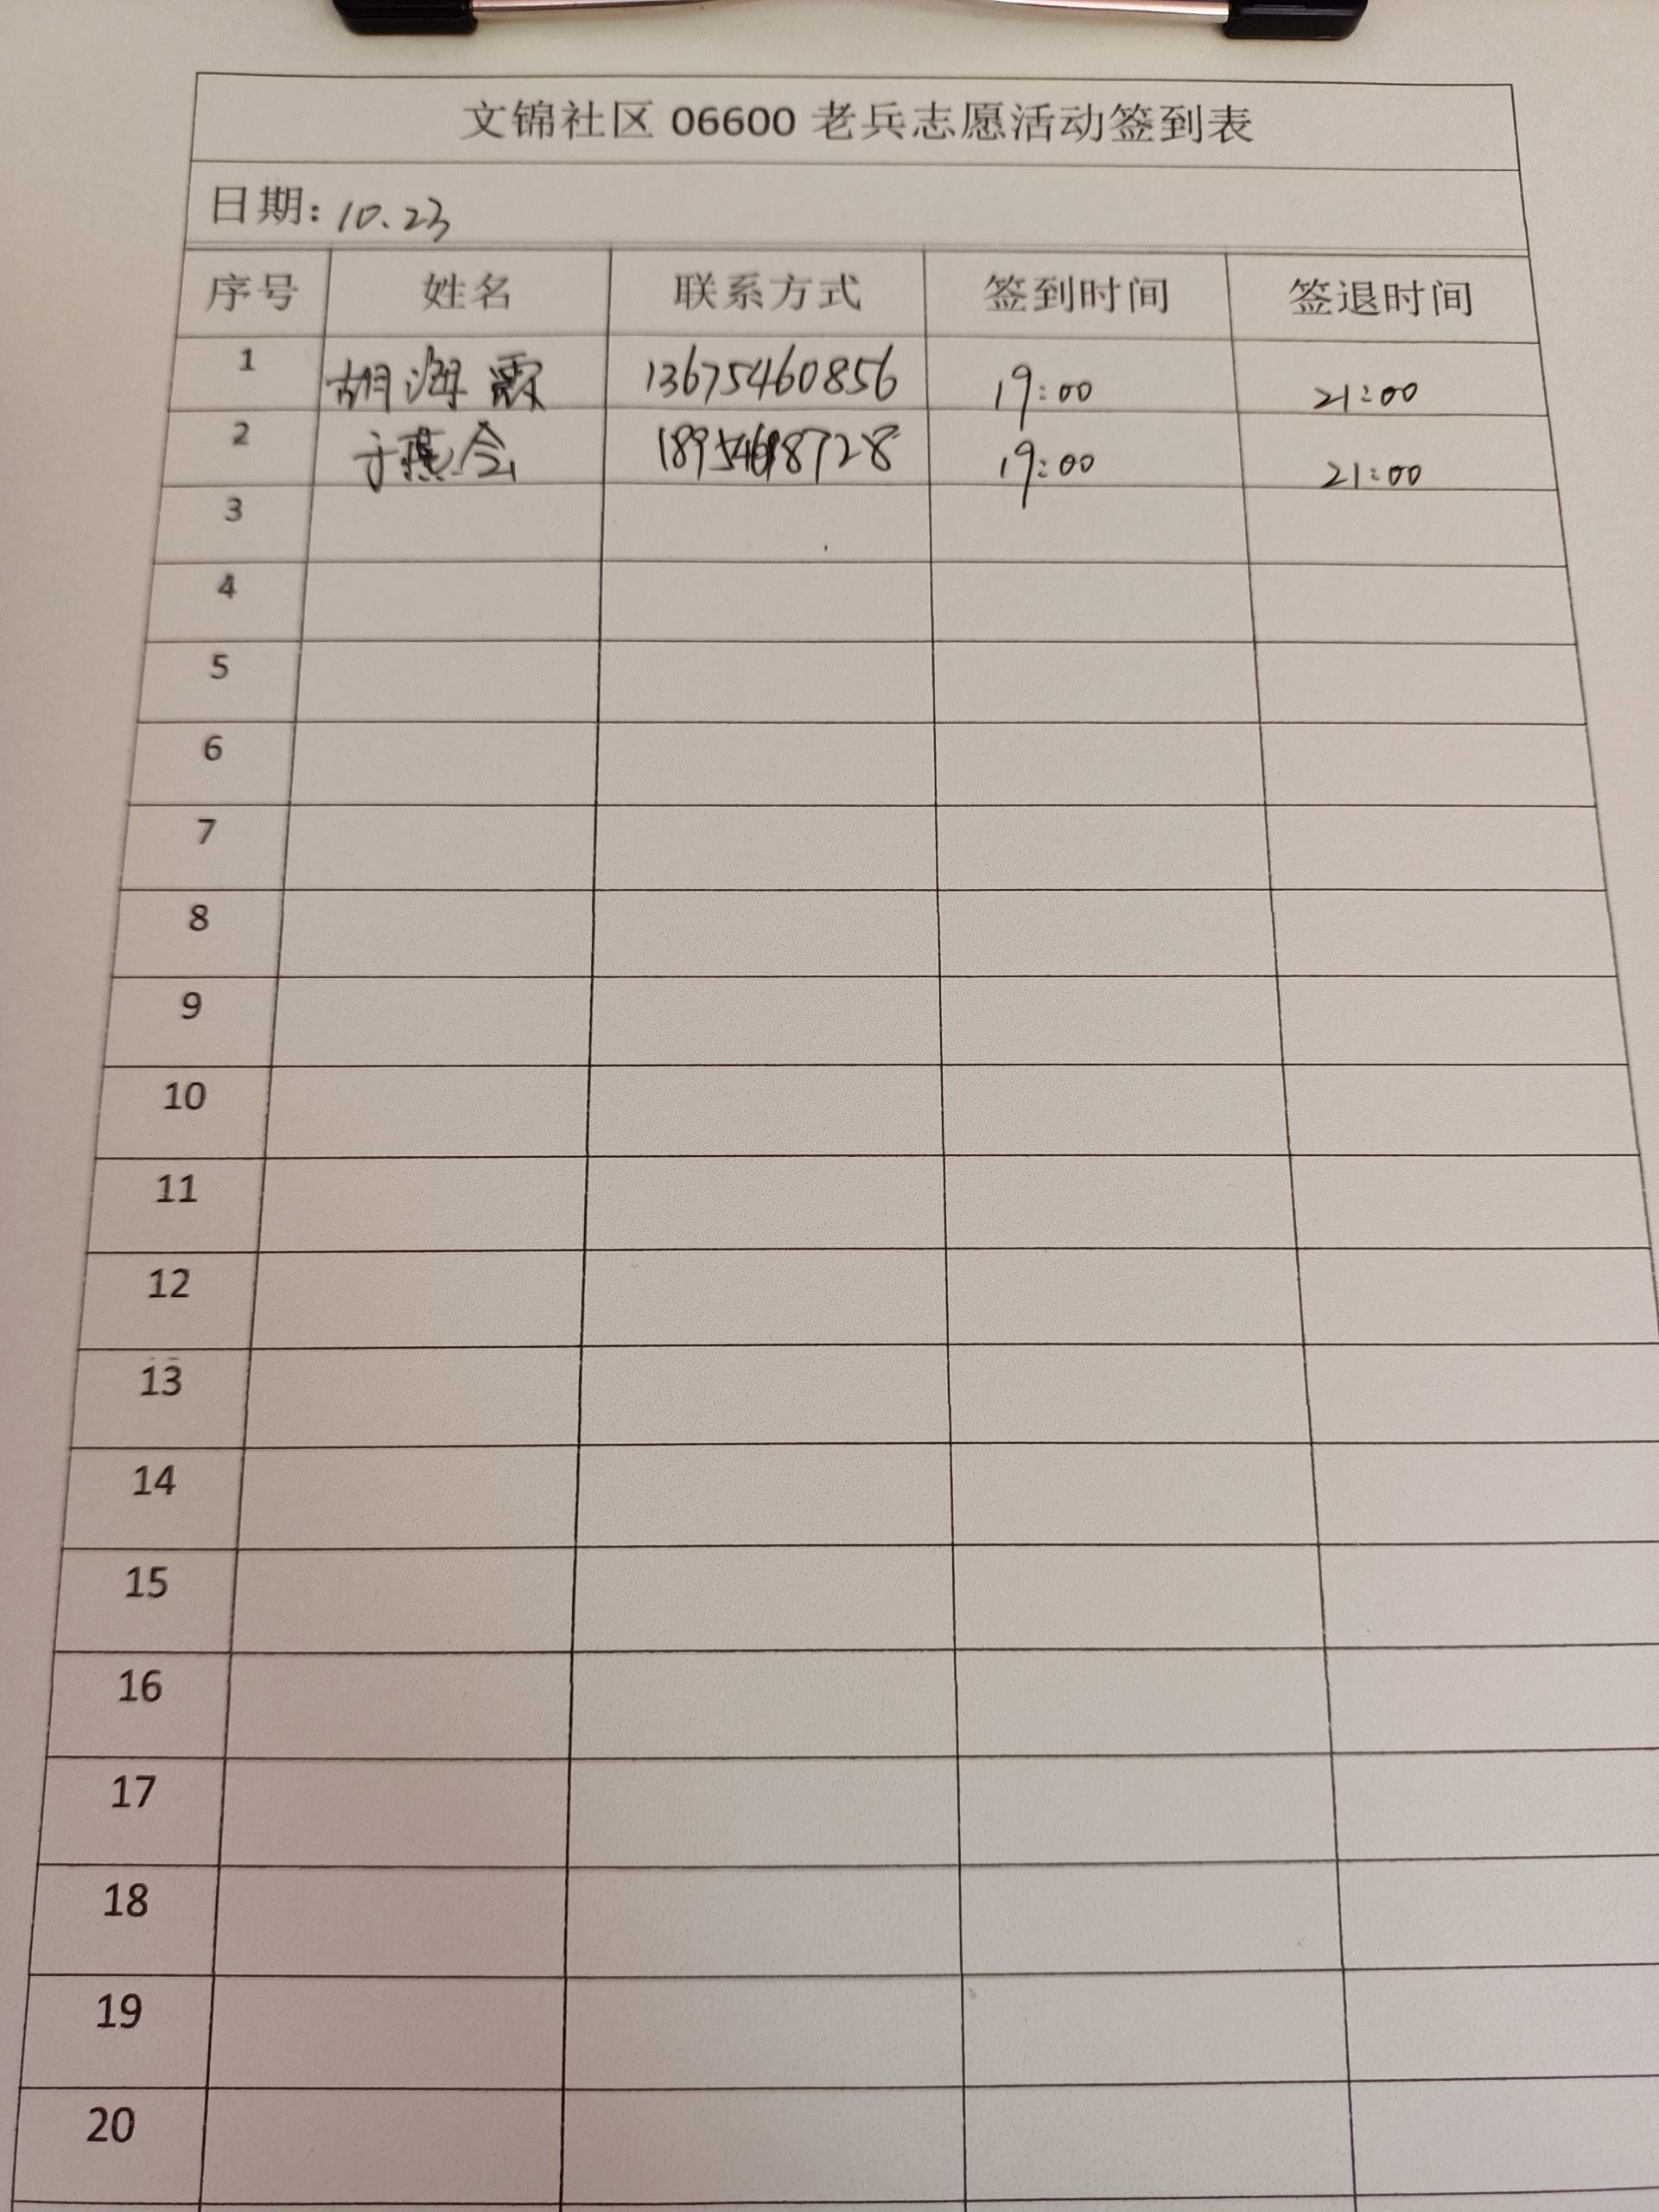 文锦社区 06600 老兵志愿活动签到表
日期: 10.23
序号 姓名 联系方式 签到时间 签退时间
1 胡海霞 13675460856 19:00 21:00
2 于燕会 19:00 21:00
3
4
5
6
7
8
9
10
11
12
13
14
15
16
17
18
19
20